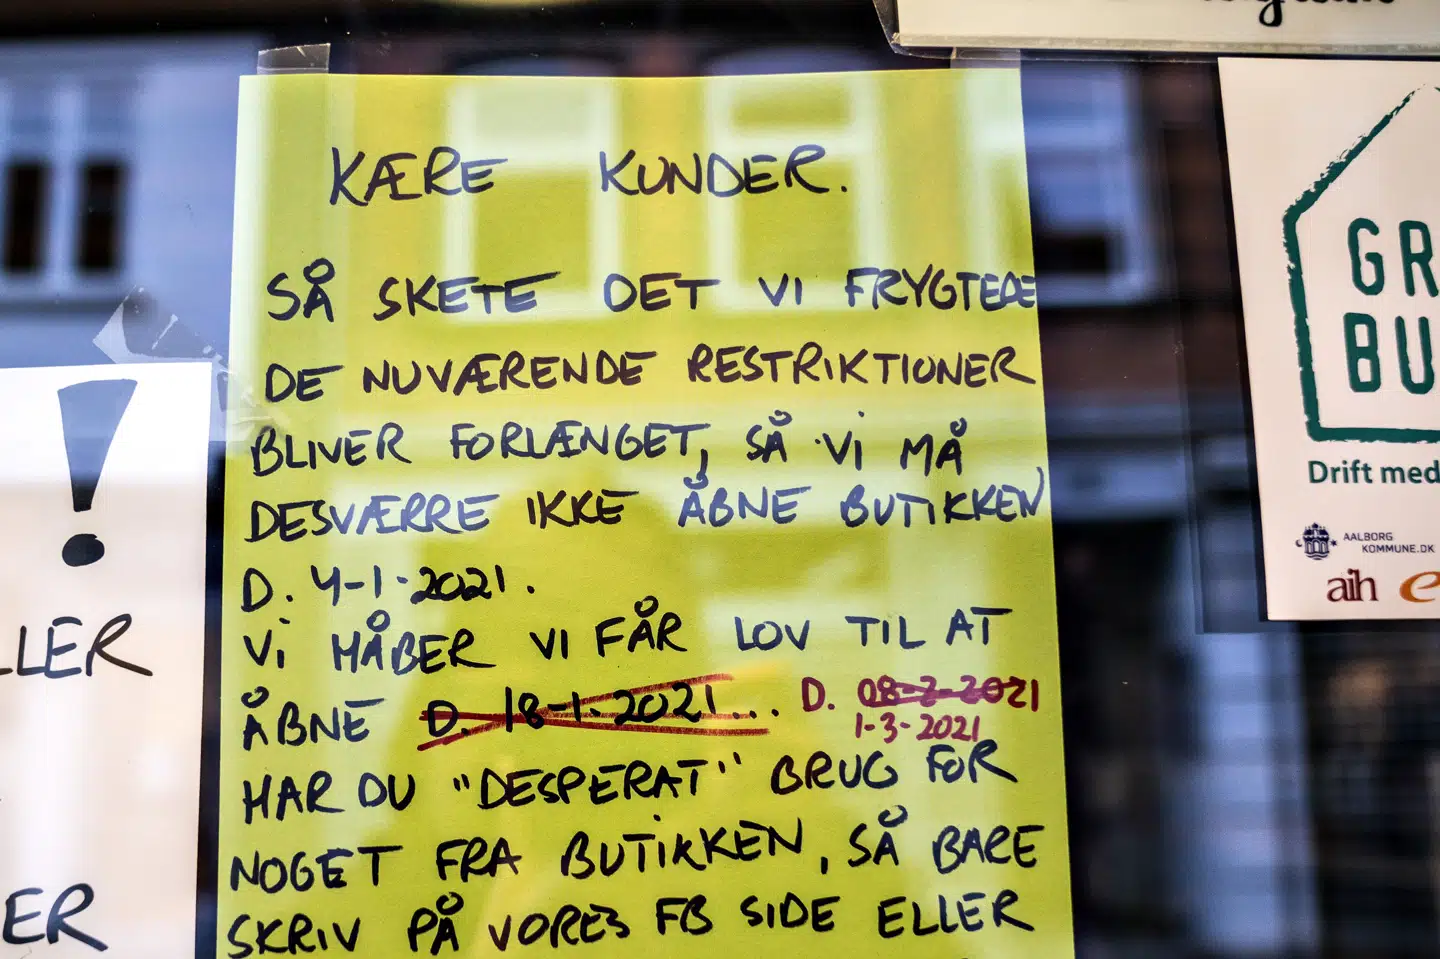 KÆRE KUNDER.
SÅ SKETE DET VI FRYGTEDE
DE NUVÆRENDE RESTRIKTIONER
BLIVER FORLÆNGET, SÅ VI MÅ
DESVÆRRE IKKE ÅBNE BUTIKKEN
D. 4-1-2021.
VI HÅBER VI FÅR LOV TIL AT
ÅBNE D. 18-1-2021... D. 08-2-2021
1-3-2021
HAR DU "DESPERAT" BRUG FOR
NOGET FRA BUTIKKEN, SÅ BARE
SKRIV PÅ VORES FB SIDE ELLER
!
LLER
ER
GR
BU
Drift med
AALBORG
KOMMUNE.DK
aih e